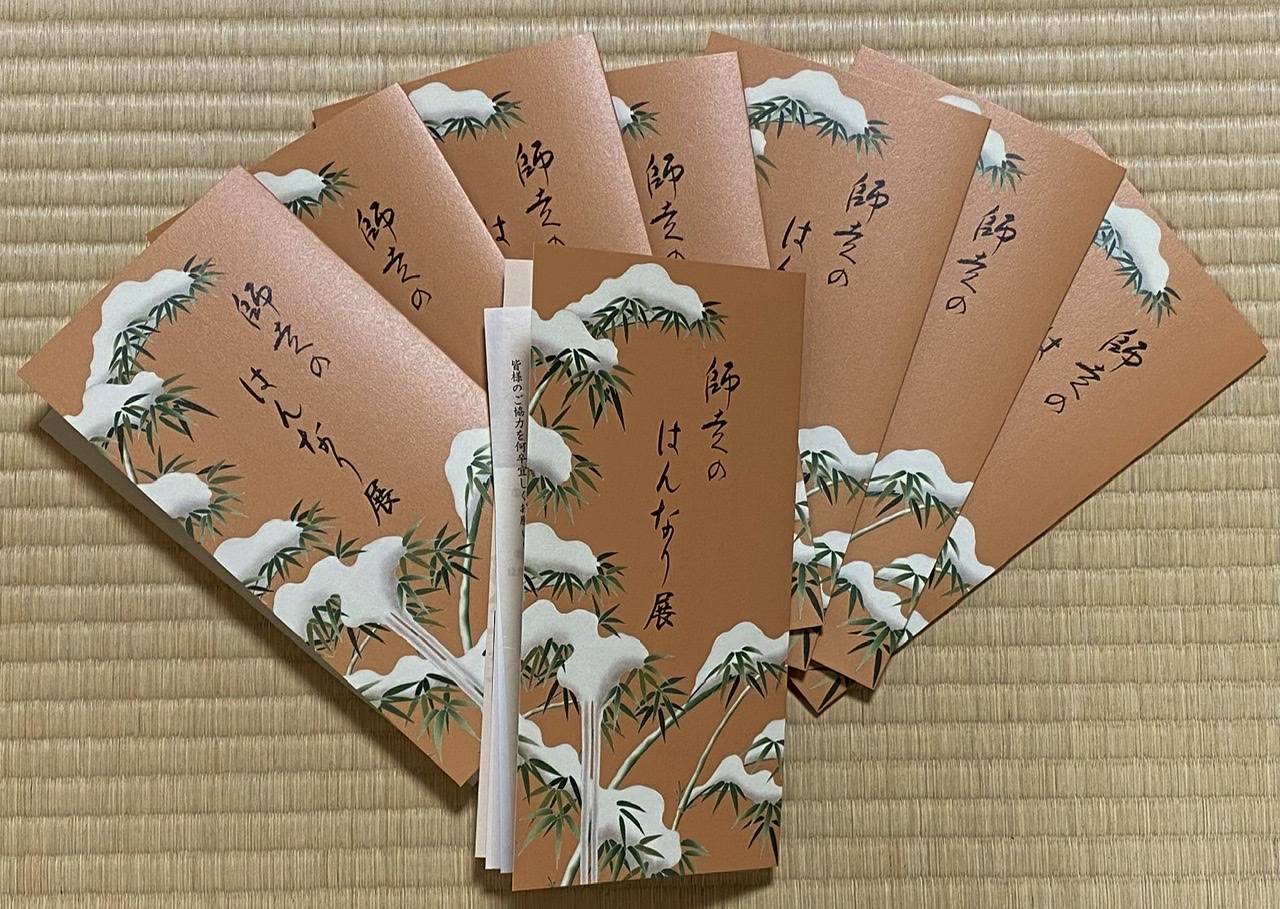 師走の
はんなり展
師走の
師走の
は
師走の
師走の
はん
師走の
師走の
は
師走の
はんなり展
皆様のご協力を何卒宜しくお願い